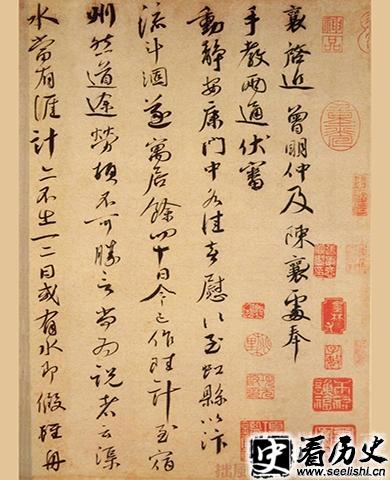 襄啓近曾明仲及陳襄處奉
手教兩通伏審
動靜安康門中各佳喜慰〻至虹縣以汴
流斗涸遂寓居餘四十日今已作陸計至宿
州然道途勞頓不可勝言尚為說者云渠
水當有涯計亦不出一二日或有水即假輕舟
史看历史
www.seelishi.cn